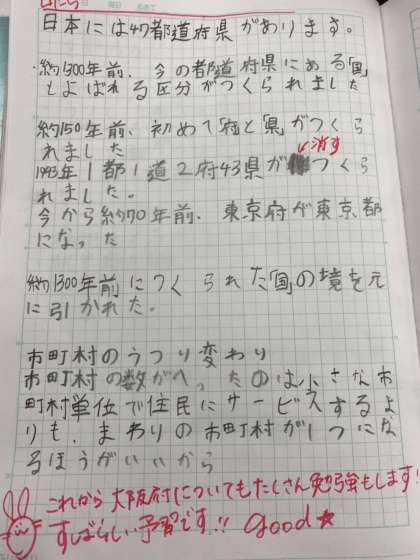 日本には47都道府県があります。
・約1300年前、今の都道府県にある「国」
とよばれる区分がつくられました
約150年前、初めて「府」と「県」がつくら
れました
消す
1943年1都1道2府43県がつくら
れました。
今から約70年前、東京府が東京都
になった
約1300年前につくられた「国」の境を元
に引かれた。
市町村のうつり変わり
市町村の数がへったのは小さな市
町村単位で住民にサービスするよ
りも、まわりの市町村が1つにな
るほうがいいから
これから大阪府についてもたくさん勉強もします!
すばらしい予習です!! good